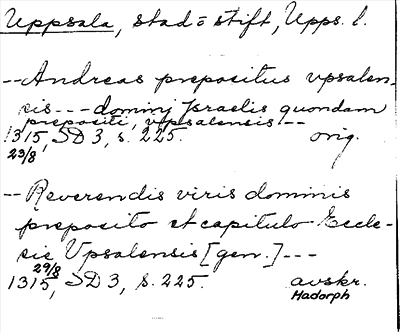 Uppsala, stad o stift, Upps. l.
--Andreas prepositus vpsalen-
sis --- dominj Jsraelis quondam
prepositi, vpsalensis --
1315, SD 3, s. 225. orig.
23/8
-- Reverendis viris dominis
preposito et capitulo Eccle-
sie Vpsalensis [gen.] ---
29/8
1315, SD 3, s. 225. avskr.
Hadorph